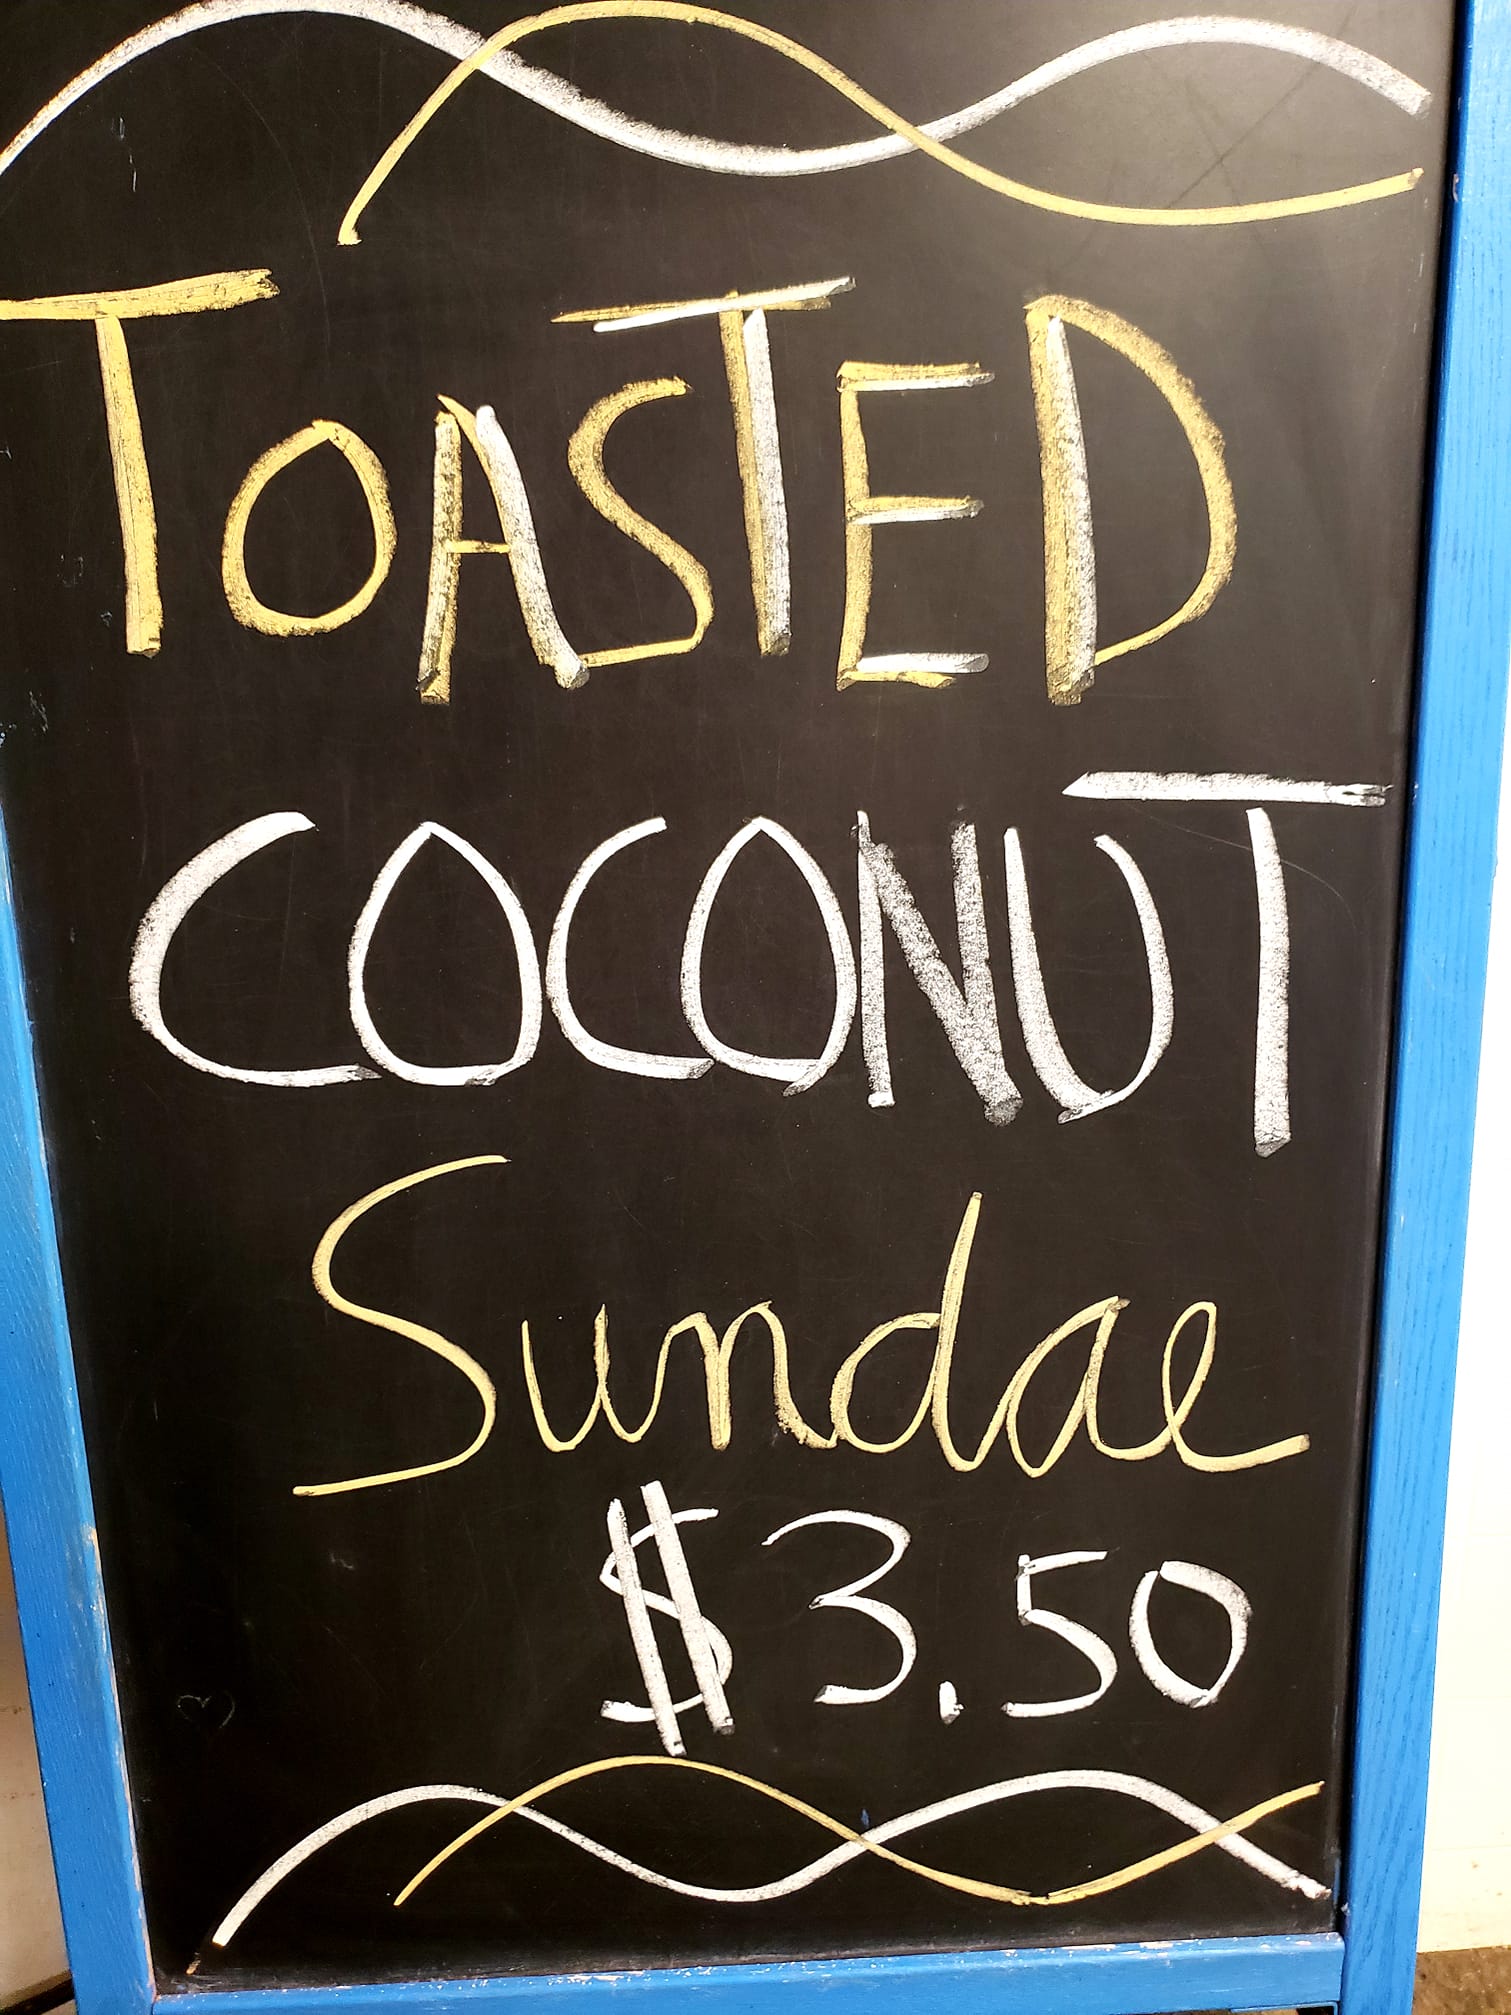 TOASTED
COCONUT
Sundae
$3.50